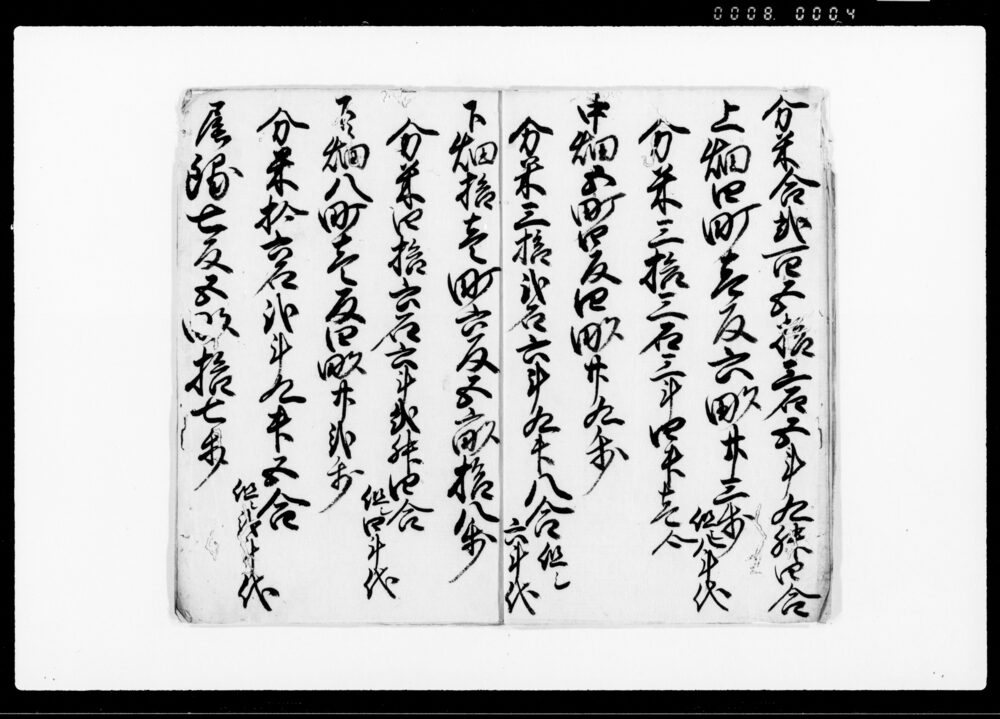 0008 0004
分米合弐百五拾三石五斗九升四合
上畑四町壱反六畝廿三歩
但八斗代
分米三拾三石三斗四升壱合
中畑五町四反四畝廿九歩
分米三拾弐石六斗九升八合 但シ
六斗代
下畑拾壱町六反五畝拾八歩
分米四拾六石六斗弐升四合
但シ四斗代
下々畑八町壱反四畝廿弐歩
分米拾六石弐斗九升五合
但シ弐斗代
屋敷七反五畝拾七歩